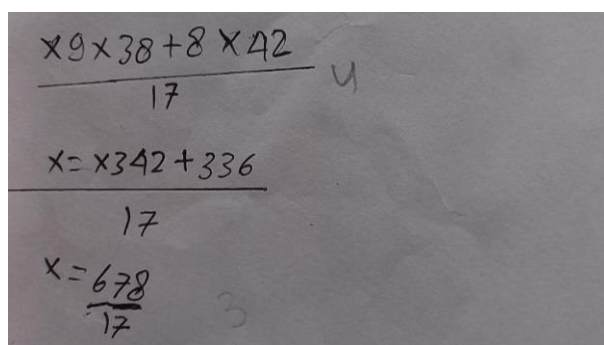 ×9×38+8×42
17
x=×342+336
17
x=678
17